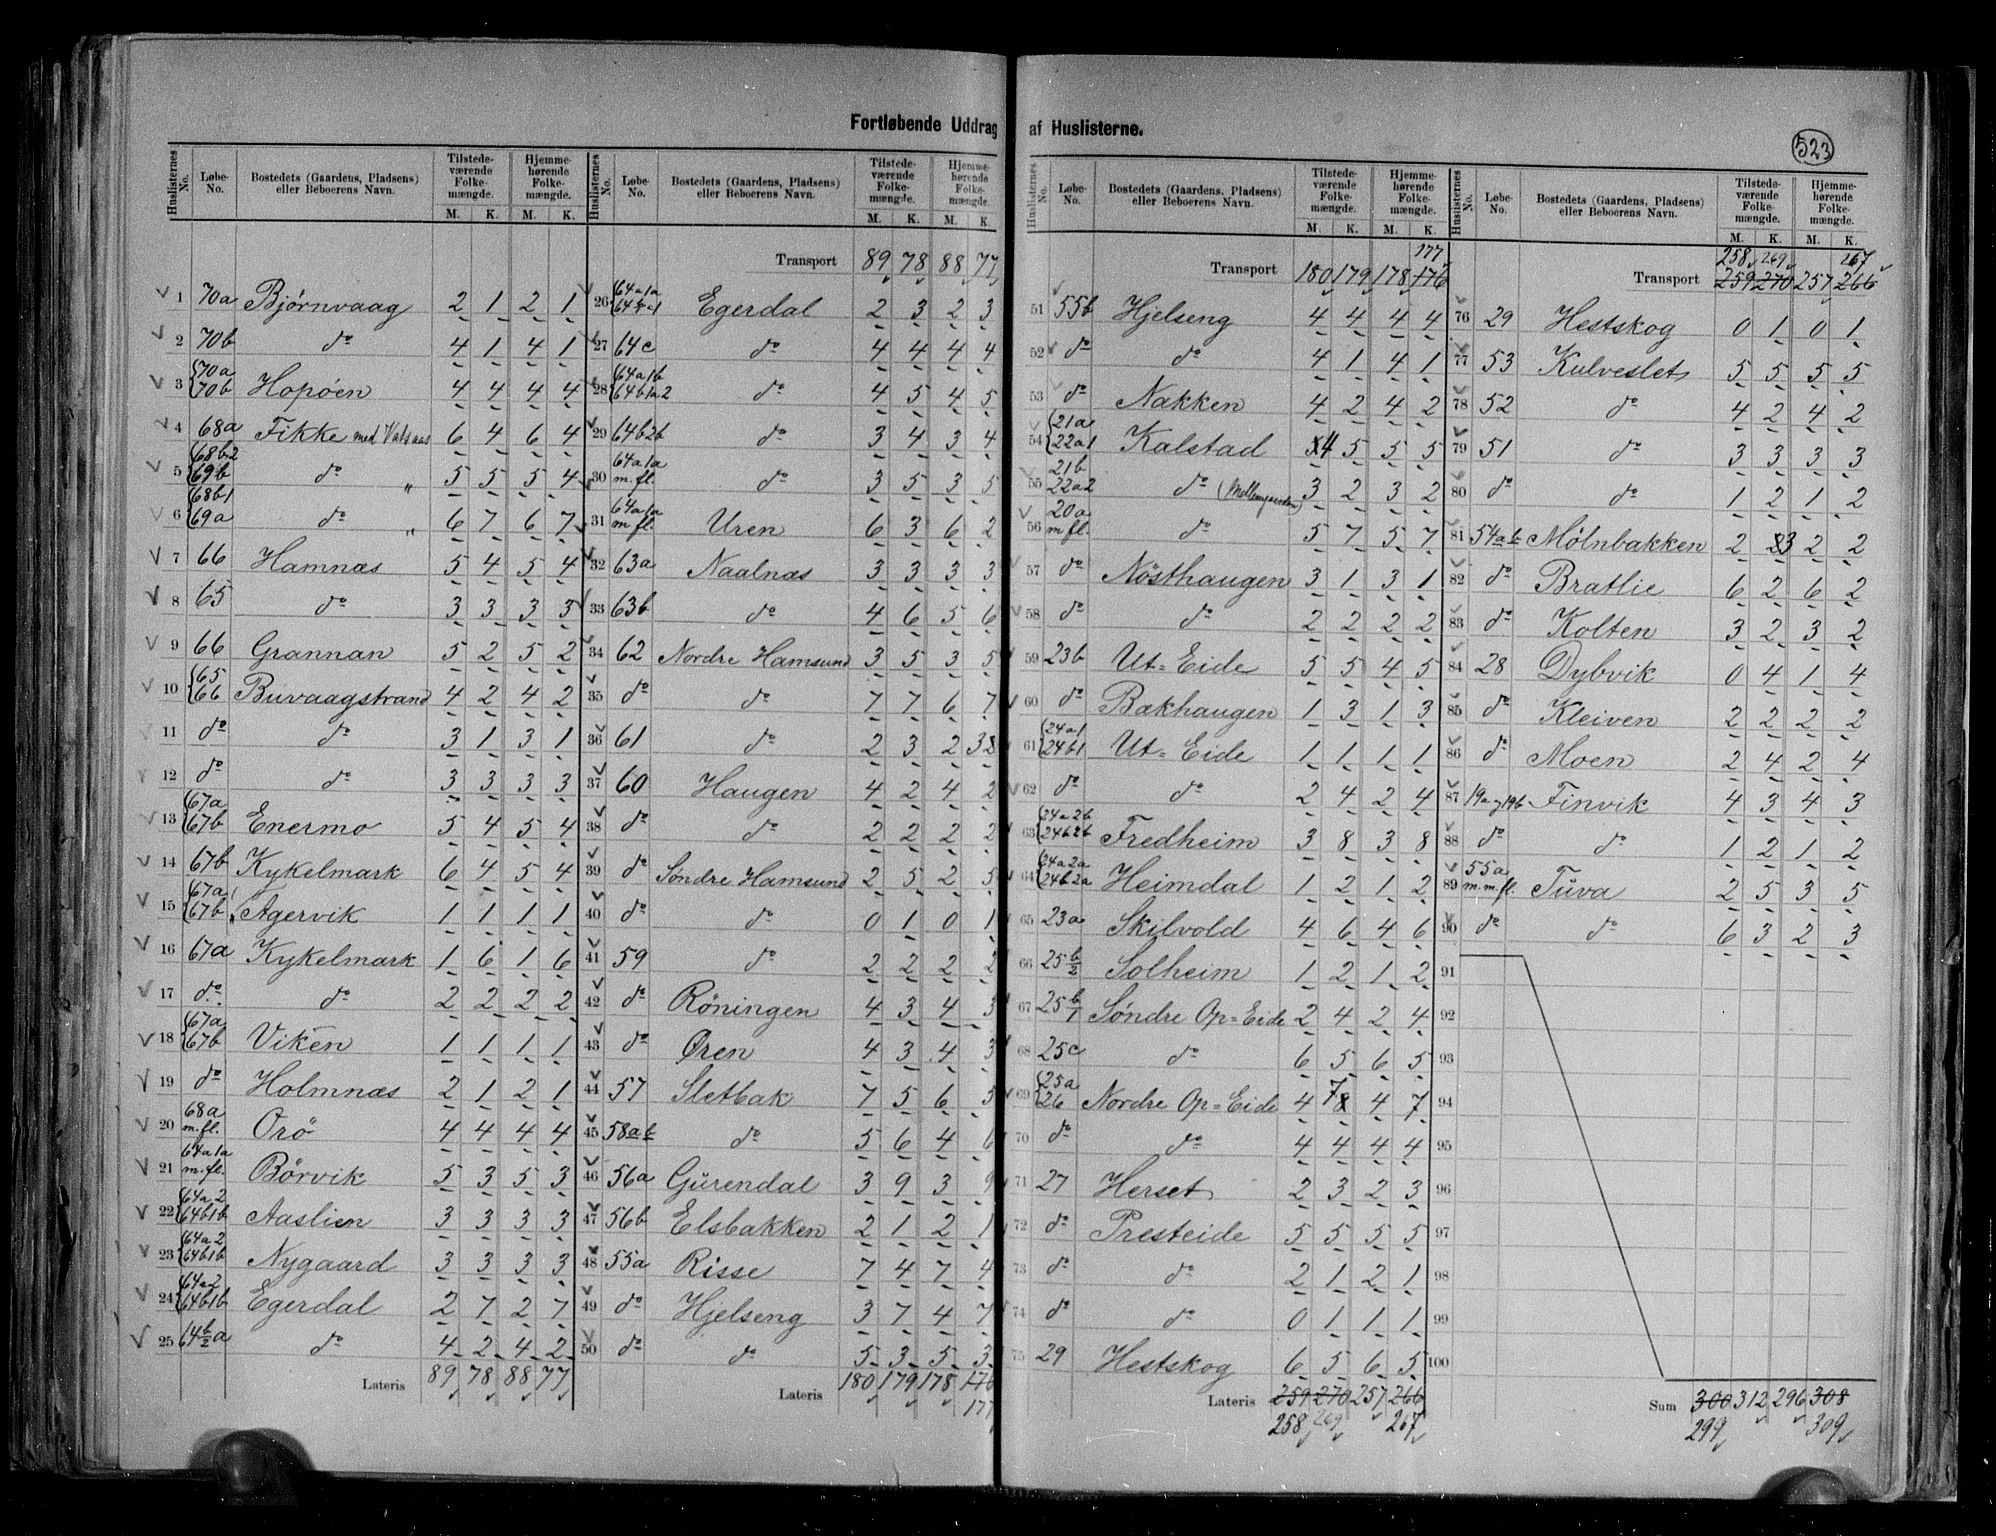 Fortløbende Uddrag af Huslisterne.
523
Huslisternes No. | Løbe-No. | Bostedets (Gaardens, Pladsens) eller Beboerens Navn. | Tilstedeværende Folkemængde. M. K. | Hjemmehørende Folkemængde. M. K.
1 70a Bjørnvaag 2 1 2 1
2 70b do 4 1 4 1
3 70a 70b Hopøen 4 4 4 4
4 68a Fikke med Valsaas 6 4 6 4
5 68b2 69b do " 5 5 5 4
6 68b1 69a do " 6 7 6 7
7 66 Hamnæs 5 4 5 4
8 65 do 3 3 3 3
9 66 Grannan 5 2 5 2
10 65 66 Buvaagstrand 4 2 4 2
11 do do 3 1 3 1
12 do do 3 3 3 3
13 67a 67b Enermo 5 4 5 4
14 67b Kykelmark 6 4 5 4
15 67a 67b Agervik 1 1 1 1
16 67a Kykelmark 1 6 1 6
17 do do 2 2 2 2
18 67a 67b Viken 1 1 1 1
19 do Holmnæs 2 1 2 1
20 68a m.fl. Orö 4 4 4 4
21 64a1a m.fl. Börvik 5 3 5 3
22 64a2 64b1b Aaslien 3 3 3 3
23 64a2 64b1b Nygaard 3 3 3 3
24 64a2 64b1b Egerdal 2 7 2 7
25 64b/2a do 4 2 4 2
Lateris 89 78 88 77
Huslisternes No. | Løbe-No. | Bostedets (Gaardens, Pladsens) eller Beboerens Navn. | Tilstedeværende Folkemængde. M. K. | Hjemmehørende Folkemængde. M. K.
Transport 89 78 88 77
26 64a1a Egerdal 2 3 2 3
27 64c do 4 4 4 4
28 64a1b 64b1a2 do 4 5 4 5
29 64b2b do 3 4 3 4
30 64a1a m.fl. do 3 5 3 5
31 64a1a m fl. Uren 6 3 6 2
32 63a Naalnæs 3 3 3 3
33 63b do 4 6 5 6
34 62 Nordre Hamsund 3 5 3 5
35 do do 7 7 6 7
36 61 do 2 3 2 3
37 60 Haugen 4 2 4 2
38 do do 2 2 2 2
39 do Søndre Hamsund 2 5 2 5
40 do do 0 1 0 1
41 59 do 2 2 2 2
42 do Röningen 4 3 4 3
43 do Øren 4 3 4 3
44 57 Sletbak 7 5 6 5
45 58a b do 5 6 4 6
46 56a Gürendal 3 9 3 9
47 56b Elsbakken 2 1 2 1
48 55a Risse 7 4 7 4
49 do Hjelseng 3 7 4 7
50 do do 5 3 5 3
Lateris 180 179 178 176
177
Huslisternes No. | Løbe-No. | Bostedets (Gaardens, Pladsens) eller Beboerens Navn. | Tilstedeværende Folkemængde. M. K. | Hjemmehørende Folkemængde. M. K.
177
Transport 180 179 178 176
51 55b Hjelseng 4 4 4 4
52 do do 4 1 4 1
53 do Nakken 4 2 4 2
54 21a 22a1 Kalstad 4 5 5 5
55 21b 22a2 do (Mellemgaarden) 3 2 3 2
56 20a m fl. do 5 7 5 7
57 do Nösthaugen 3 1 3 1
58 do do 2 2 2 2
59 23b Ut=Eide 5 5 4 5
60 do Bakhaugen 1 3 1 3
61 24a1 24b1 Ut=Eide 1 1 1 1
62 do do 2 4 2 4
63 24a2b 24b2b Fredheim 3 8 3 8
64 24a2a 24b2a Heimdal 1 2 1 2
65 23a Skilvold 4 6 4 6
66 25b/2 Solheim 1 2 1 2
67 25b/1 Søndre Op=Eide 2 4 2 4
68 25c do 6 5 6 5
69 25a 26 Nordre Op=Eide 4 7 8 4 7
70 do do 4 4 4 4
71 27 Herset 2 3 2 3
72 do Presteide 5 5 5 5
73 do do 2 1 2 1
74 do do 0 1 1 1
75 29 Hestskog 6 5 6 5
Lateris 259 270 257 266
258 269 267
Huslisternes No. | Løbe-No. | Bostedets (Gaardens, Pladsens) eller Beboerens Navn. | Tilstedeværende Folkemængde. M. K. | Hjemmehørende Folkemængde. M. K.
258 269 267
Transport 259 270 257 266
76 29 Hestskog 0 1 0 1
77 53 Kulveslet 5 5 5 5
78 52 do 4 2 4 2
79 51 do 3 3 3 3
80 do do 1 2 1 2
81 54a b Mölnbakken 2 2 3 2 2
82 do Bratlie 6 2 6 2
83 do Kolten 3 2 3 2
84 28 Dybvik 0 4 1 4
85 do Kleiven 2 2 2 2
86 do Moen 2 4 2 4
87 19a og 19b Finvik 4 3 4 3
88 do do 1 2 1 2
89 55a m.m.fl. Tüva 2 5 3 5
90 do do 6 3 2 3
91
92
93
94
95
96
97
98
99
100
Sum 300 312 296 308
299 309